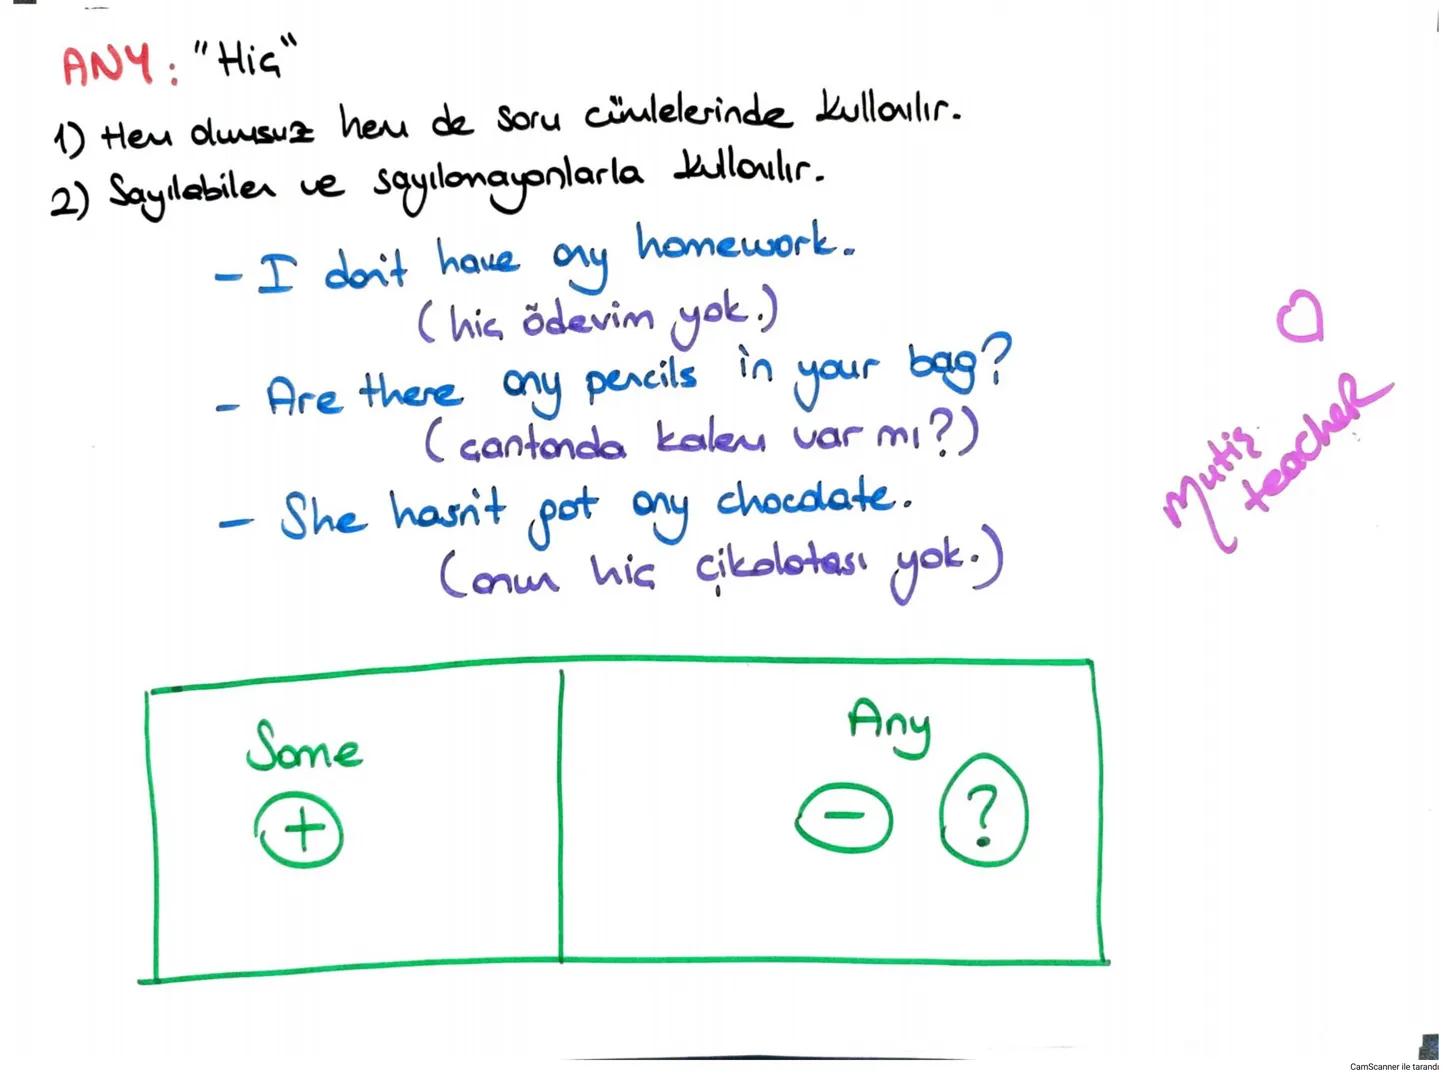 ANY: "Hiç"
1) Hem olumsuz hem de soru cümlelerinde kullanılır.
2) Sayılabilen ve sayılamayanlarla kullanılır.
- I don't have any homework.
(hiç ödevim yok.)
- Are there any pencils in your bag?
(çantanda kalem var mı?)
- She hasn't got any chocolate.
(onun hiç çikolatası yok.)
Mutiş
teacher
Some
Any
+
- ?
CamScanner ile tarandı